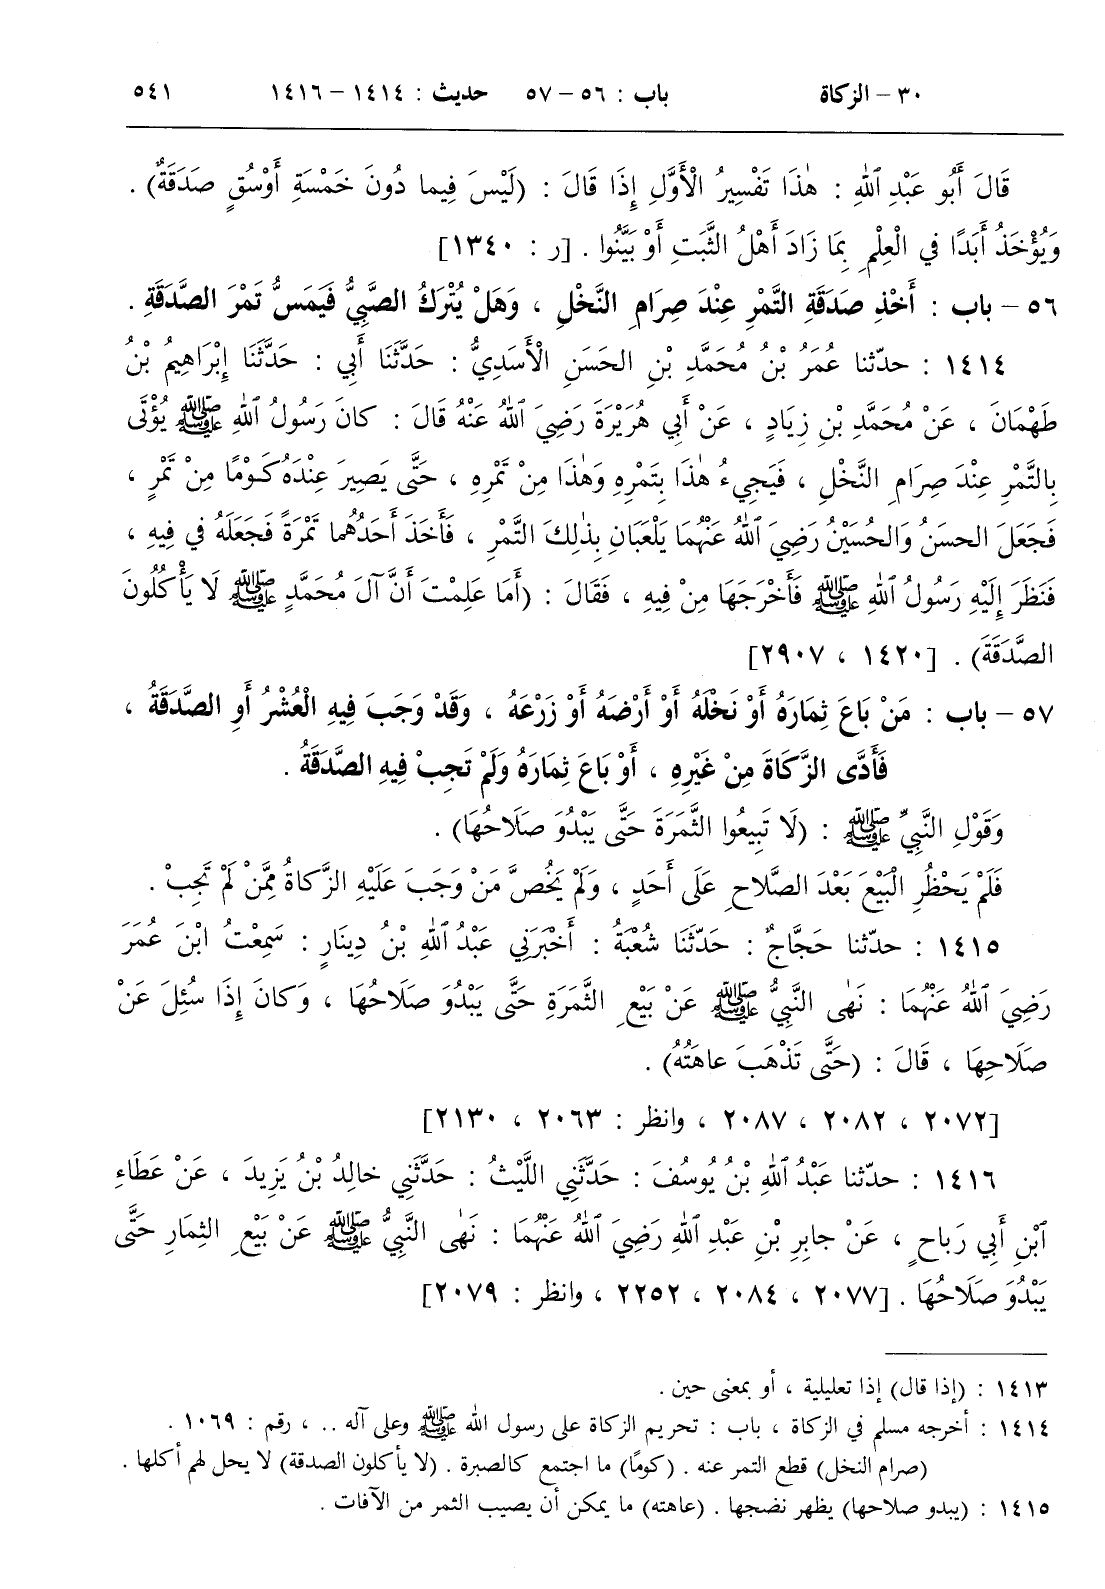 ٣٠ – الزكاة باب : ٥٦ – ٥٧ حديث : ١٤١٤ – ١٤١٦ ٥٤١
قَالَ أَبُو عَبْدِ ٱللهِ : هٰذَا تَفْسِيرُ الْأَوَّلِ إِذَا قَالَ : (لَيْسَ فِيما دُونَ خَمْسَةِ أَوْسُقٍ صَدَقَةٌ) .
وَيُؤْخَذُ أَبَدًا في الْعِلْمِ بِمَا زَادَ أَهْلُ الثَّبَتِ أَوْ بَيَّنُوا . [ر : ١٣٤٠]
٥٦ – باب : أَخْذِ صَدَقَةِ التَّمْرِ عِنْدَ صِرَامِ النَّخْلِ ، وَهَلْ يُتْرَكُ الصَّبِيُّ فَيَمَسُّ تَمْرَ الصَّدَقَةِ .
١٤١٤ : حدّثنا عُمَرُ بْنُ مُحَمَّدِ بْنِ الحَسَنِ الْأَسَدِيُّ : حَدَّثَنَا أَبِي : حَدَّثَنَا إِبْرَاهِيمُ بْنُ
طَهْمَانَ ، عَنْ مُحَمَّدِ بْنِ زِيَادٍ ، عَنْ أَبِي هُرَيْرَةَ رَضِيَ ٱللهُ عَنْهُ قَالَ : كانَ رَسُولُ ٱللهِ ﷺ يُؤْتَى
بِالتَّمْرِ عِنْدَ صِرَامِ النَّخْلِ ، فَيَجِيءُ هٰذَا بِتَمْرِهِ وَهٰذَا مِنْ تَمْرِهِ ، حَتَّى يَصِيرَ عِنْدَهُ كَوْمًا مِنْ تَمْرٍ ،
فَجَعَلَ الحسَنُ وَالحُسَيْنُ رَضِيَ ٱللهُ عَنْهُمَا يَلْعَبَانِ بِذٰلِكَ التَّمْرِ ، فَأَخَذَ أَحَدُهُما تَمْرَةً فَجَعَلَهُ في فِيهِ ،
فَنَظَرَ إِلَيْهِ رَسُولُ ٱللهِ ﷺ فَأَخْرَجَهَا مِنْ فِيهِ ، فَقَالَ : (أَمَا عَلِمْتَ أَنَّ آلَ مُحَمَّدٍ ﷺ لَا يَأْكُلُونَ
الصَّدَقَةَ) . [١٤٢٠ ، ٢٩٠٧]
٥٧ – باب : مَنْ بَاعَ ثِمَارَهُ أَوْ نَخْلَهُ أَوْ أَرْضَهُ أَوْ زَرْعَهُ ، وَقَدْ وَجَبَ فِيهِ الْعُشْرُ أَوِ الصَّدَقَةُ ،
فَأَدَّى الزَّكَاةَ مِنْ غَيْرِهِ ، أَوْ بَاعَ ثِمَارَهُ وَلَمْ تَجِبْ فِيهِ الصَّدَقَةُ .
وَقَوْلِ النَّبِيِّ ﷺ : (لَا تَبِيعُوا الثَّمَرَةَ حَتَّى يَبْدُوَ صَلَاحُهَا) .
فَلَمْ يَحْظُرِ الْبَيْعَ بَعْدَ الصَّلَاحِ عَلَى أَحَدٍ ، وَلَمْ يَخُصَّ مَنْ وَجَبَ عَلَيْهِ الزَّكاةُ مِمَّنْ لَمْ تَجِبْ .
١٤١٥ : حدّثنا حَجَّاجٌ : حَدَّثَنَا شُعْبَةُ : أَخْبَرَنِي عَبْدُ ٱللهِ بْنُ دِينَارٍ : سَمِعْتُ ابْنَ عُمَرَ
رَضِيَ ٱللهُ عَنْهُمَا : نَهٰى النَّبِيُّ ﷺ عَنْ بَيْعِ الثَّمَرَةِ حَتَّى يَبْدُوَ صَلَاحُهَا ، وَكانَ إِذَا سُئِلَ عَنْ
صَلَاحِهَا ، قَالَ : (حَتَّى تَذْهَبَ عاهَتُهُ) .
[٢٠٧٢ ، ٢٠٨٢ ، ٢٠٨٧ ، وانظر : ٢٠٦٣ ، ٢١٣٠]
١٤١٦ : حدّثنا عَبْدُ ٱللهِ بْنُ يُوسُفَ : حَدَّثَنِي اللَّيْثُ : حَدَّثَنِي خالِدُ بْنُ يَزِيدَ ، عَنْ عَطَاءِ
ٱبْنِ أَبِي رَبَاحٍ ، عَنْ جابِرِ بْنِ عَبْدِ ٱللهِ رَضِيَ ٱللهُ عَنْهُمَا : نَهٰى النَّبِيُّ ﷺ عَنْ بَيْعِ الثِمَارِ حَتَّى
يَبْدُوَ صَلَاحُهَا . [٢٠٧٧ ، ٢٠٨٤ ، ٢٢٥٢ ، وانظر : ٢٠٧٩]
١٤١٣ : (إذا قال) إذا تعليلية ، أو بمعنى حين .
١٤١٤ : أخرجه مسلم في الزكاة ، باب : تحريم الزكاة على رسول الله ﷺ وعلى آله .. ، رقم : ١٠٦٩ .
(صرام النخل) قطع التمر عنه . (كومًا) ما اجتمع كالصبرة . (لا يأكلون الصدقة) لا يحل لهم أكلها .
١٤١٥ : (يبدو صلاحها) يظهر نضجها . (عاهته) ما يمكن أن يصيب الثمر من الآفات .